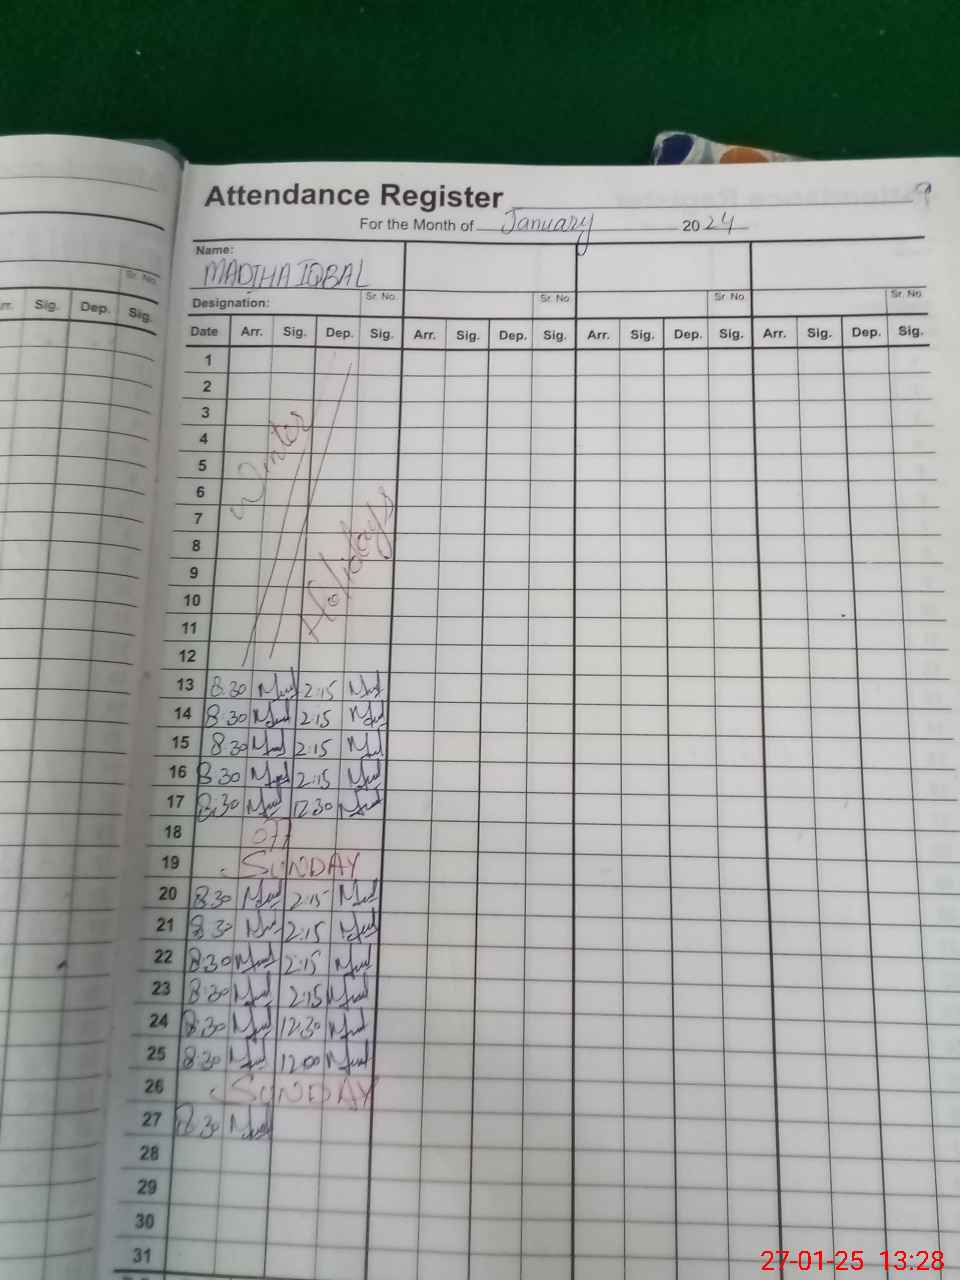 Attendance Register
For the Month of January 2024
Name:
MADIHA IQBAL
Designation: Sr. No. Sr. No. Sr. No. Sr. No.
Sr. No.
Sig. Dep. Sig.
Date Arr. Sig. Dep. Sig. Arr. Sig. Dep. Sig. Arr. Sig. Dep. Sig. Arr. Sig. Dep. Sig.
1
2
3
4
Winter
5
6
7
8
Holidays
9
10
11
12
13 8:30 2:15
14 8:30 2:15
15 8:30 2:15
16 8:30 2:15
17 8:30 12:30
18 OFF
19 SUNDAY
20 8:30 2:15
21 8:30 2:15
22 8:30 2:15
23 8:30 2:15
24 8:30 12:30
25 8:30 12:00
26 SUNDAY
27 8:30
28
29
30
31
27-01-25 13:28